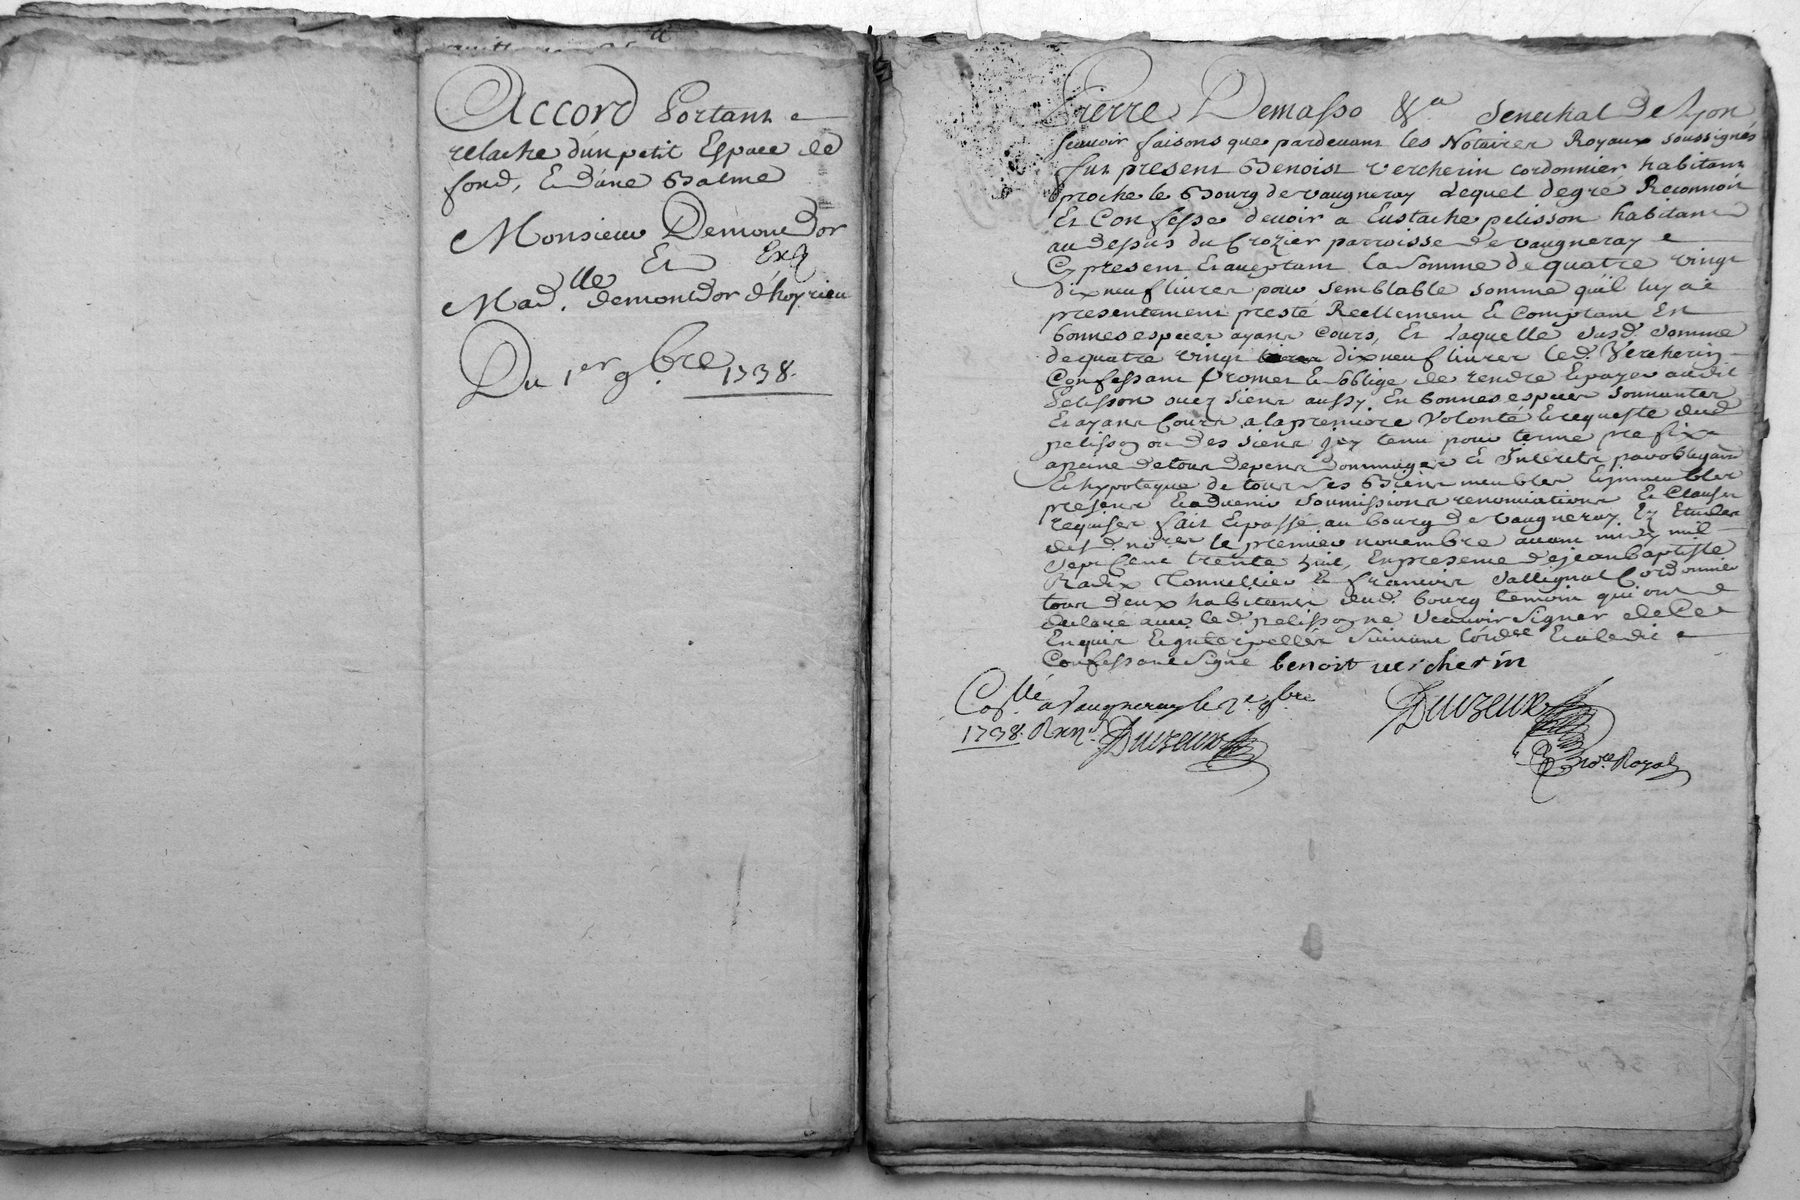 Accord Portant
relache d'un petit Espace de
fond, et d'une Balme
Monsieur Demontdor
Et
Mad.lle demontdor d'hoyrieu
Du 1er 9bre 1738.
Pierre Demasso &a Senechal de Lyon
scavoir faisons que pardevant les Notaires Royaux soussignés
fut present Benoist Vercherin cordonnier habitant
proche le Bourg de Vaugneray Lequel de gré Reconnoit
Et Confesse devoir a Eustache pelisson habitant
au dessus du Crozier parroisse de Vaugneray
Cy present et acceptant la somme de quatre vingt
dix neuf livres pour semblable somme qu'il luy a
presentement presté Reellement et Comptant En
bonnes especes ayant Cours, Et Laquelle susd. somme
de quatre vingt dix neuf livres led. Vercherin
Confessant promet et soblige de rendre et payer audit
Pelisson ou ez siens aussy En bonnes especes sonnantes
Et ayant Cours a la premiere Volonté et requeste dud.
pelisson ou des siens Icy tenu pour terme prefix
a peine de tous depens dommages et Interets par obligation
et hypoteque de tous ses Biens meubles et immeubles
presens et advenir soumissions renonciations et Clauses
requises fait et passé au bourg de Vaugneray Ez Etudes
desd. nores le premier novembre avant midy mil
sept Cent trente huit, En presence de jean baptiste
Radix Tonnellier et francois Sallignat Cordonnier
tous deux habitants dud. bourg temoins qui ont
declaré avec led. pelisson ne scavoir signer de Ce
Enquis et interpellés suivant l'ordce Et a ledit
Confessant signé benoit vercherin
Collé a Vaugneray le 2e 9bre
1738. Duizeux
Duizeux
nore Royal